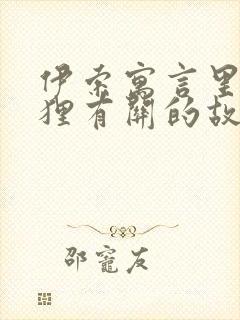 伊索寓言里
狸有关的故
邵寵友